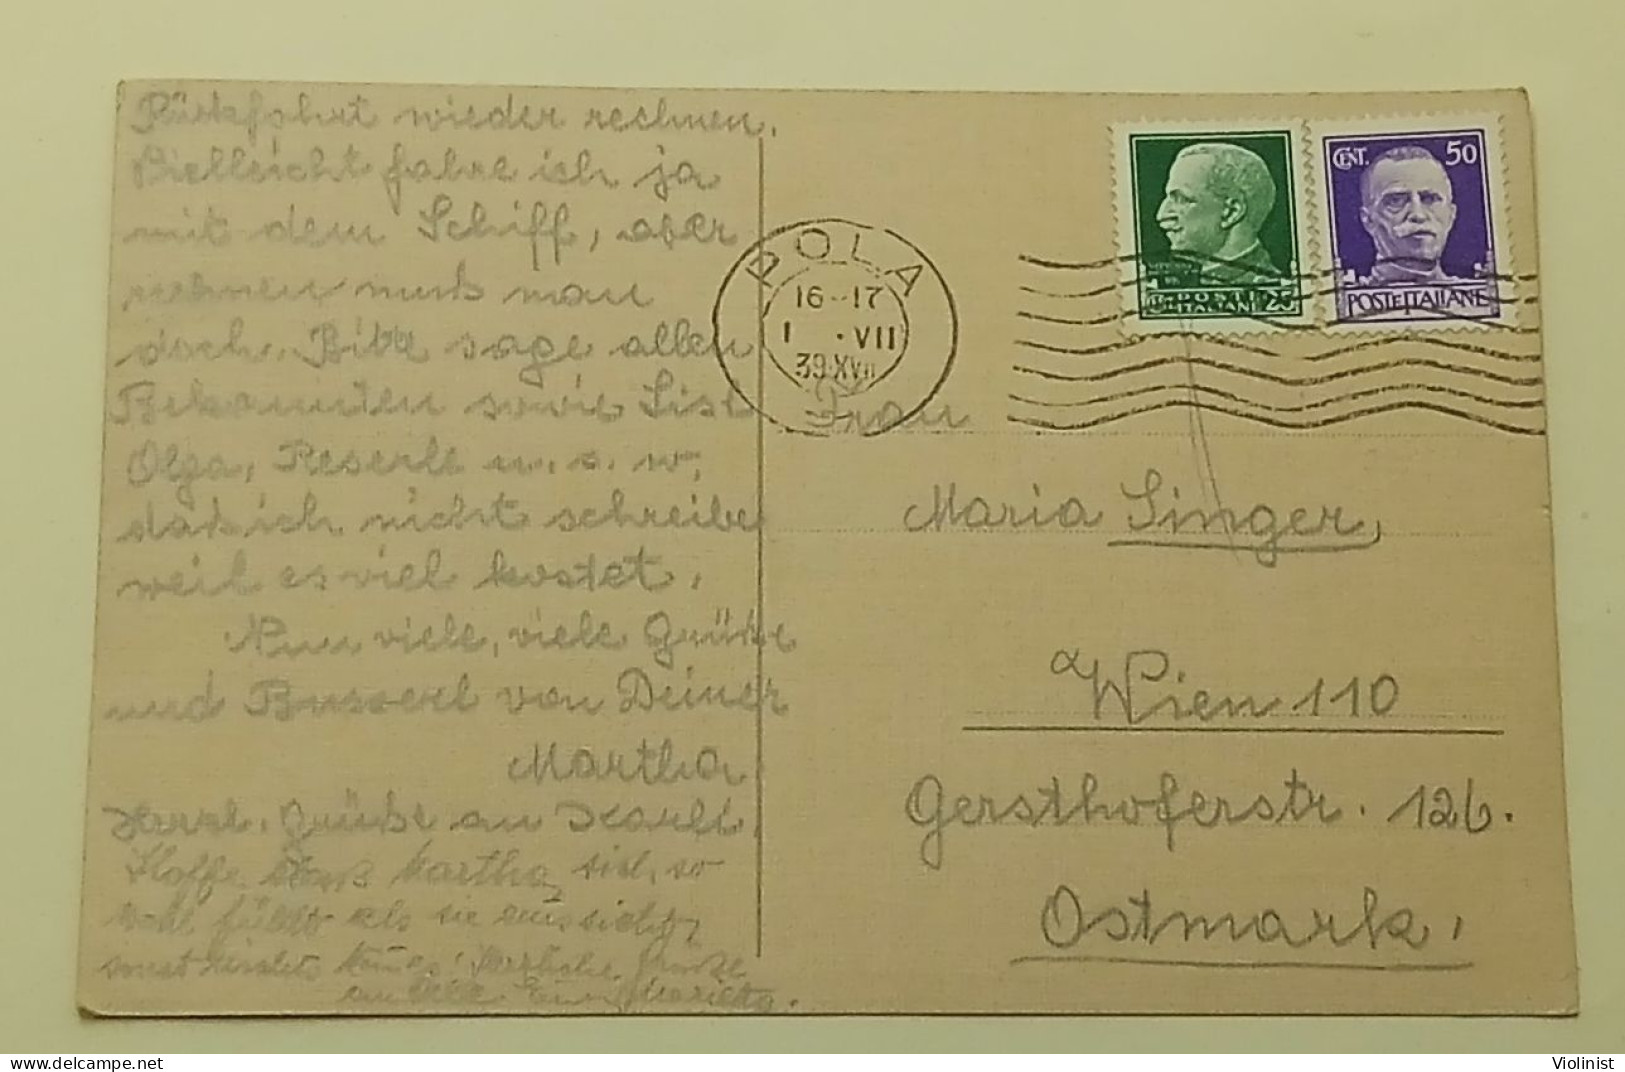 Rückfahrt wieder rechnen.
Vielleicht fahre ich ja
mit dem Schiff, aber
rechnen muß man
doch. Bitte sage allen
Bekannten sowie Lisl
Olga, Reserle u. s. w,
daß ich nicht schreibe
weil es viel kostet.
Nun viele, viele Grüße
und Busserl von Deiner
Martha
Herzl. Grüße an Karli.
Hoffe daß Martha sich so
wohl fühlt als sie aussieht,
sonst Herzliche Grüße
an alle Marietta.
POLA
16-17
1 . VII
39 XVII
CENT. 50
POSTE ITALIANE
Frau
Maria Singer,
Wien 110
Gersthoferstr. 126.
Ostmark.
delcampe.net
Violinist